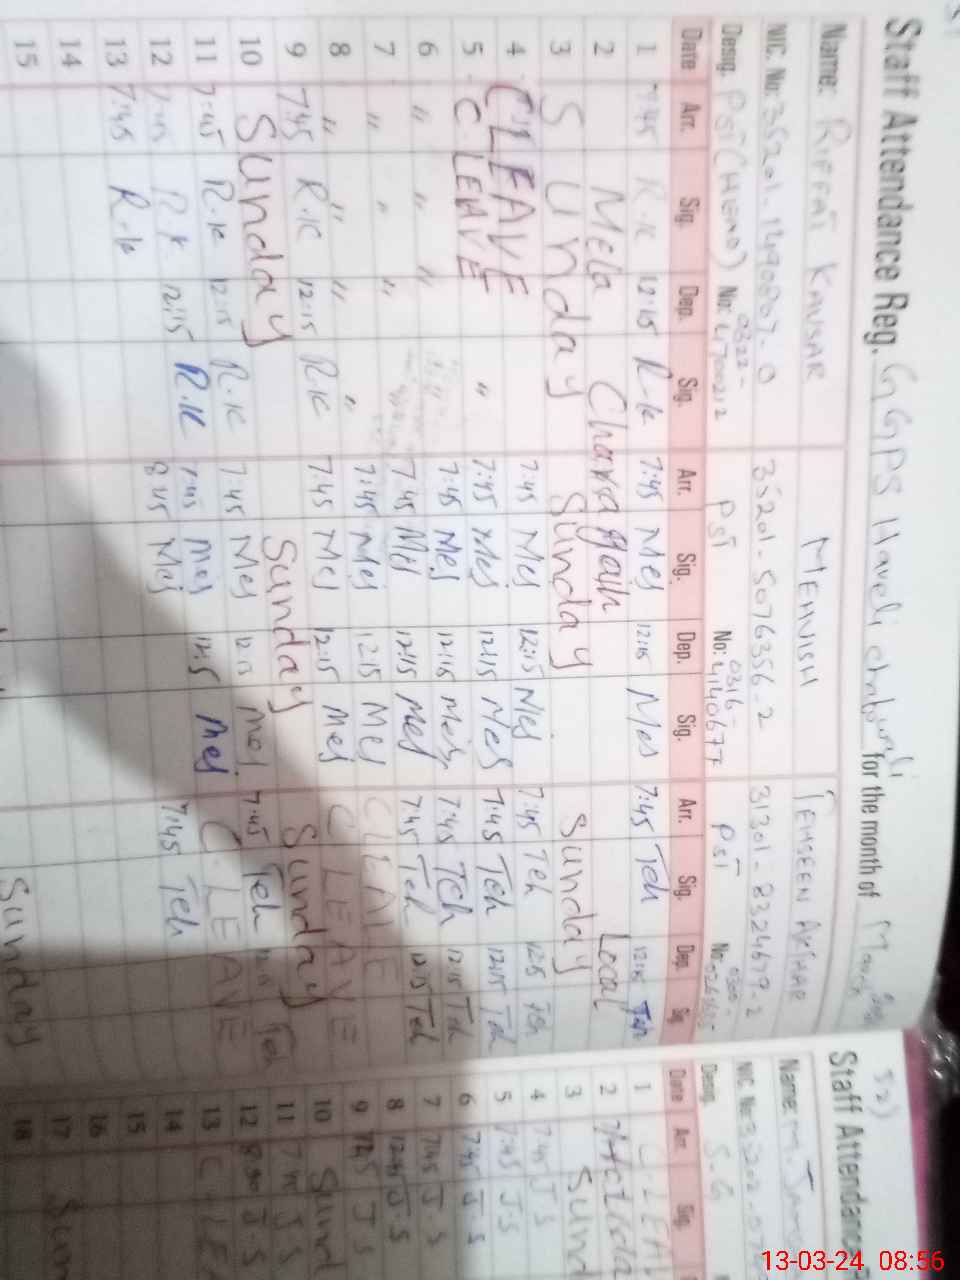 Staff Attendance Reg. GGPS Haveli for the month of March
Name: RIFFAT KAUSAR MEHVISH TEHSEEN AKHTAR
NIC. No: 35201-1490807-0 35201-5076356-2 31301-8324679-2
Desig. PST (HEAD) No: 0322-4700212 PST No: 0316-4140677 PST No:
Date Arr. Sig. Dep. Sig. Arr. Sig. Dep. Sig. Arr. Sig. Dep. Sig.
1 7:45 R.K 12:15 R.K 7:45 Mes 12:15 Mes 7:45 Teh 12:15 Teh
2 Mela Charaghan Local
3 Sunday Sunday Sunday
4 C.LEAVE 7:45 Mes 12:15 Mes 7:45 Teh 12:15 Teh
5 C.LEAVE " 7:45 Mes 12:15 Mes 7:45 Teh 12:15 Teh
6 " " " 7:45 Mes 12:15 Mes 7:45 Teh 12:15 Teh
7 " " " 7:45 Mes 12:15 Mes 7:45 Teh 12:15 Teh
8 " " " " 7:45 Mes 12:15 Mes C LEAVE
9 7:45 R.K 12:15 R.K 7:45 Mes 12:15 Mes C LEAVE
10 Sunday Sunday Sunday
11 7:45 R.K 12:15 R.K 7:45 Mes 12:15 Mes 7:45 Teh Teh
12 7:45 R.K 12:15 R.K 7:45 Mes 12:15 Mes C.LEAVE
13 7:45 R.K 8:45 Mes 7:45 Teh
14
15
Sunday
52)
Staff Attendance
Name: M.
NIC. No:
Desig. S.G
Date Arr. Sig.
1 C.LEA
2
3 Sund
4 7:45 J.S
5 7:45 J.S
6 7:45 J.S
7 7:45 J.S
8 12:45 J.S
9 7:45 J.S
10 Sund
11 7:45 J.S
12 J.S
13 C.LE
14
15
16
17 Sun
18
13-03-24 08:56